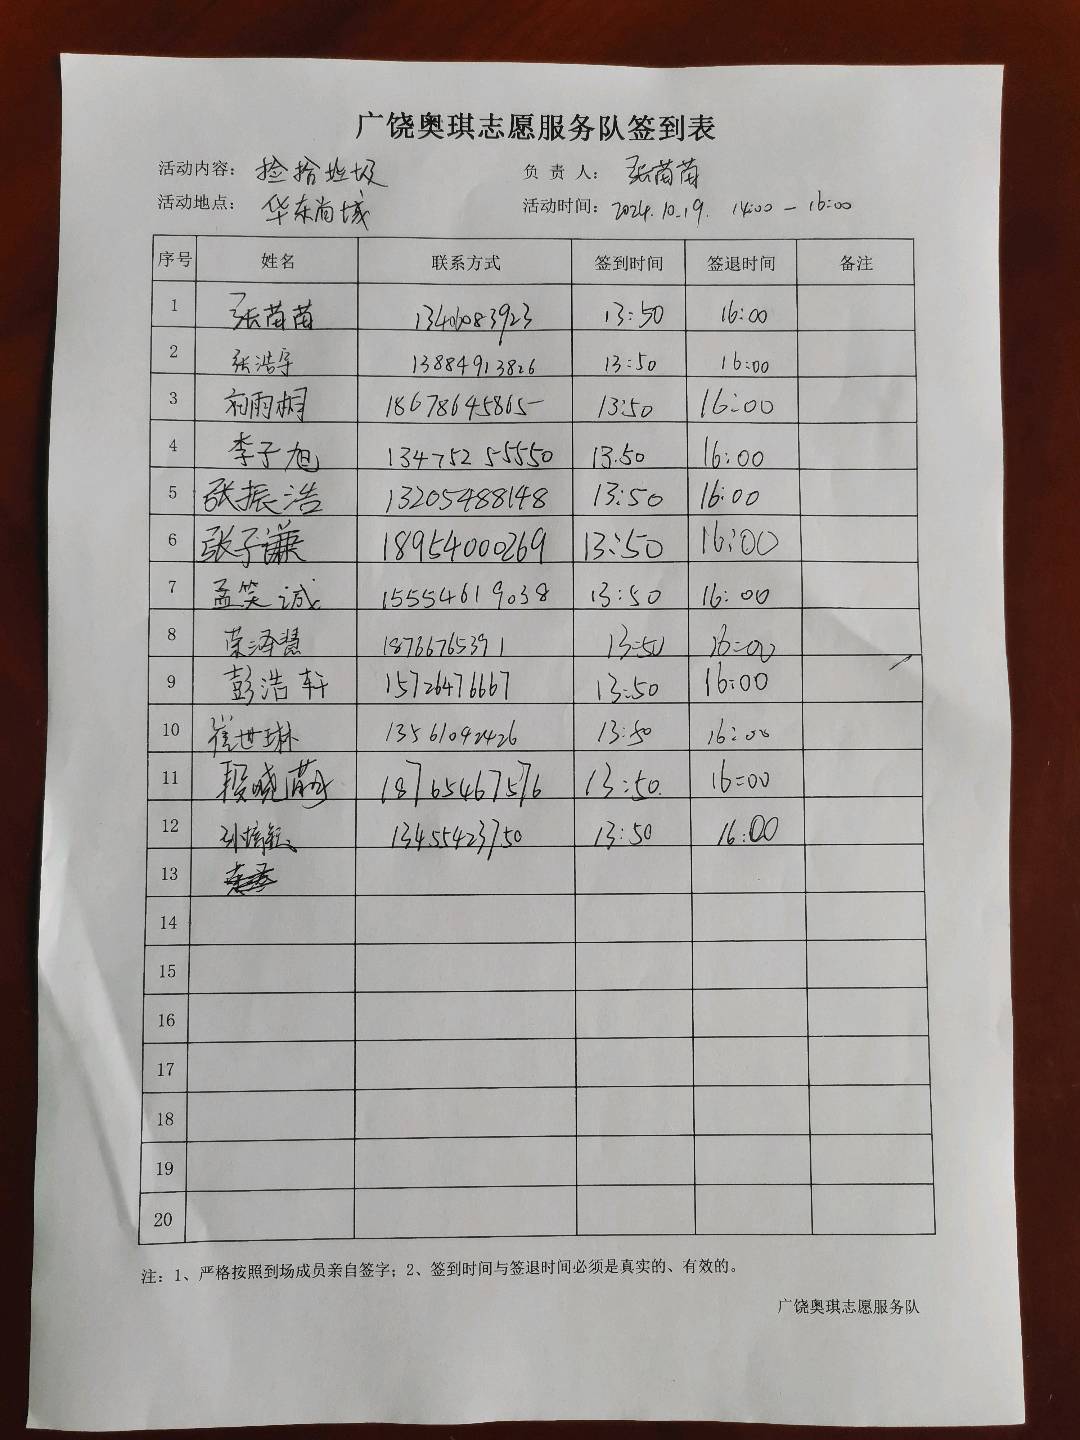 广饶奥琪志愿服务队签到表
活动内容： 捡拾垃圾 负 责 人： 张苗苗
活动地点： 华东尚域 活动时间：2024.10.19. 14:00 — 16:00
序号 姓名 联系方式 签到时间 签退时间 备注
1 张苗苗 13406083923 13:50 16:00
2 张浩宇 13884913826 13:50 16:00
3 刘雨桐 18678645865 13:50 16:00
4 李子旭 13475255550 13.50 16:00
5 张振浩 13205488148 13:50 16:00
6 张子谦 18954000269 13:50 16:00
7 孟笑诚 15554619038 13:50 16:00
8 荣泽慧 18766765391 13:50 16:00
9 彭浩轩 15726476667 13:50 16:00
10 崔世琳 13561092426 13:50 16:00
11 段晓 18765467576 13:50. 16:00
12 13455423750 13:50 16:00
13
14
15
16
17
18
19
20
注：1、严格按照到场成员亲自签字；2、签到时间与签退时间必须是真实的、有效的。
广饶奥琪志愿服务队